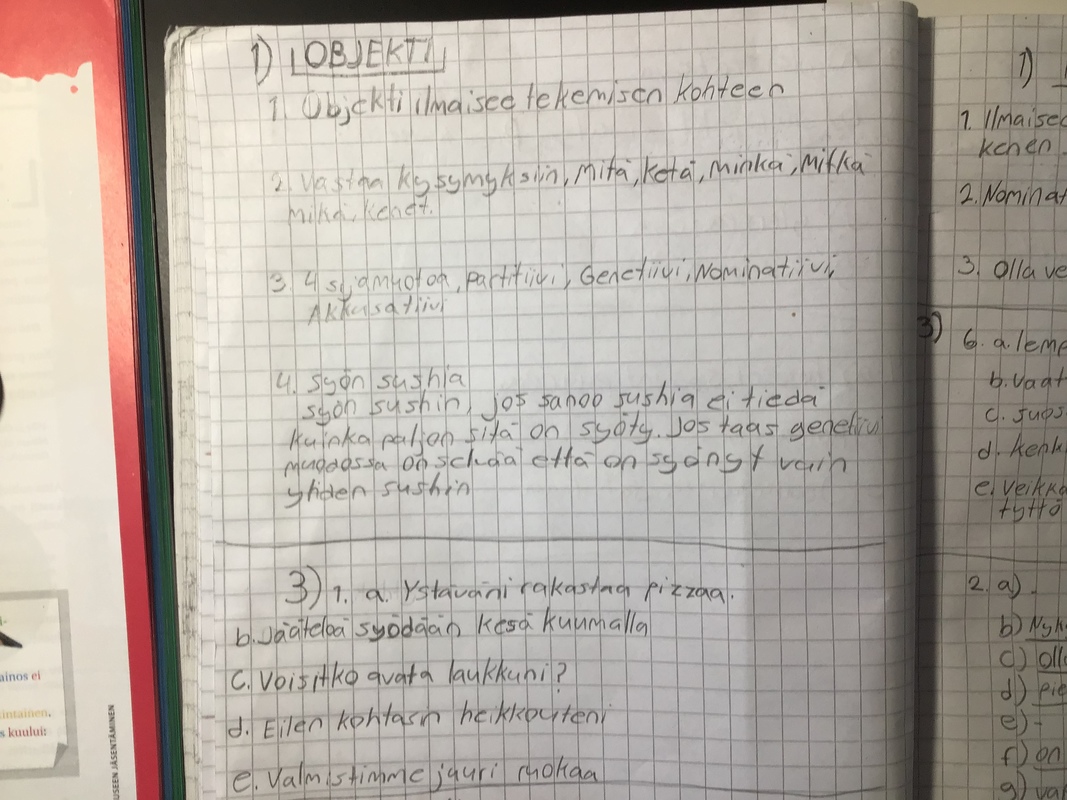 1) OBJEKTI
1. Objekti ilmaisee tekemisen kohteen
2. Vastaa kysymyksiin, Mitä, Ketä, Minkä, Mitkä
mikä, kenet.
3. 4 sijamuotoa, partitiivi, Genetiivi, Nominatiivi,
Akkusatiivi
4. syön sushia
syön sushin, jos sanoo sushia ei tiedä
kuinka paljon sitä on syöty. Jos taas genetiivi
muodossa on selvää että on syönyt vain
yhden sushin
3) 1. a. Ystäväni rakastaa pizzaa.
b. Jäätelöä syödään kesä kuumalla
c. Voisitko avata laukkuni?
d. Eilen kohtasin heikkouteni
e. Valmistimme juuri ruokaa
1)
1. Ilmaisee
kenen
2. Nominat
3. Olla ve
3) 6. a. lemp
b. vaat
c. suos
d. kenk
e. Veikka
tyttö
2. a) -
b) Nyk
c) olla
d) pie
e) -
f) on
g) val
ainos ei
intainen.
s kuului:
USEEN JÄSENTÄMINEN